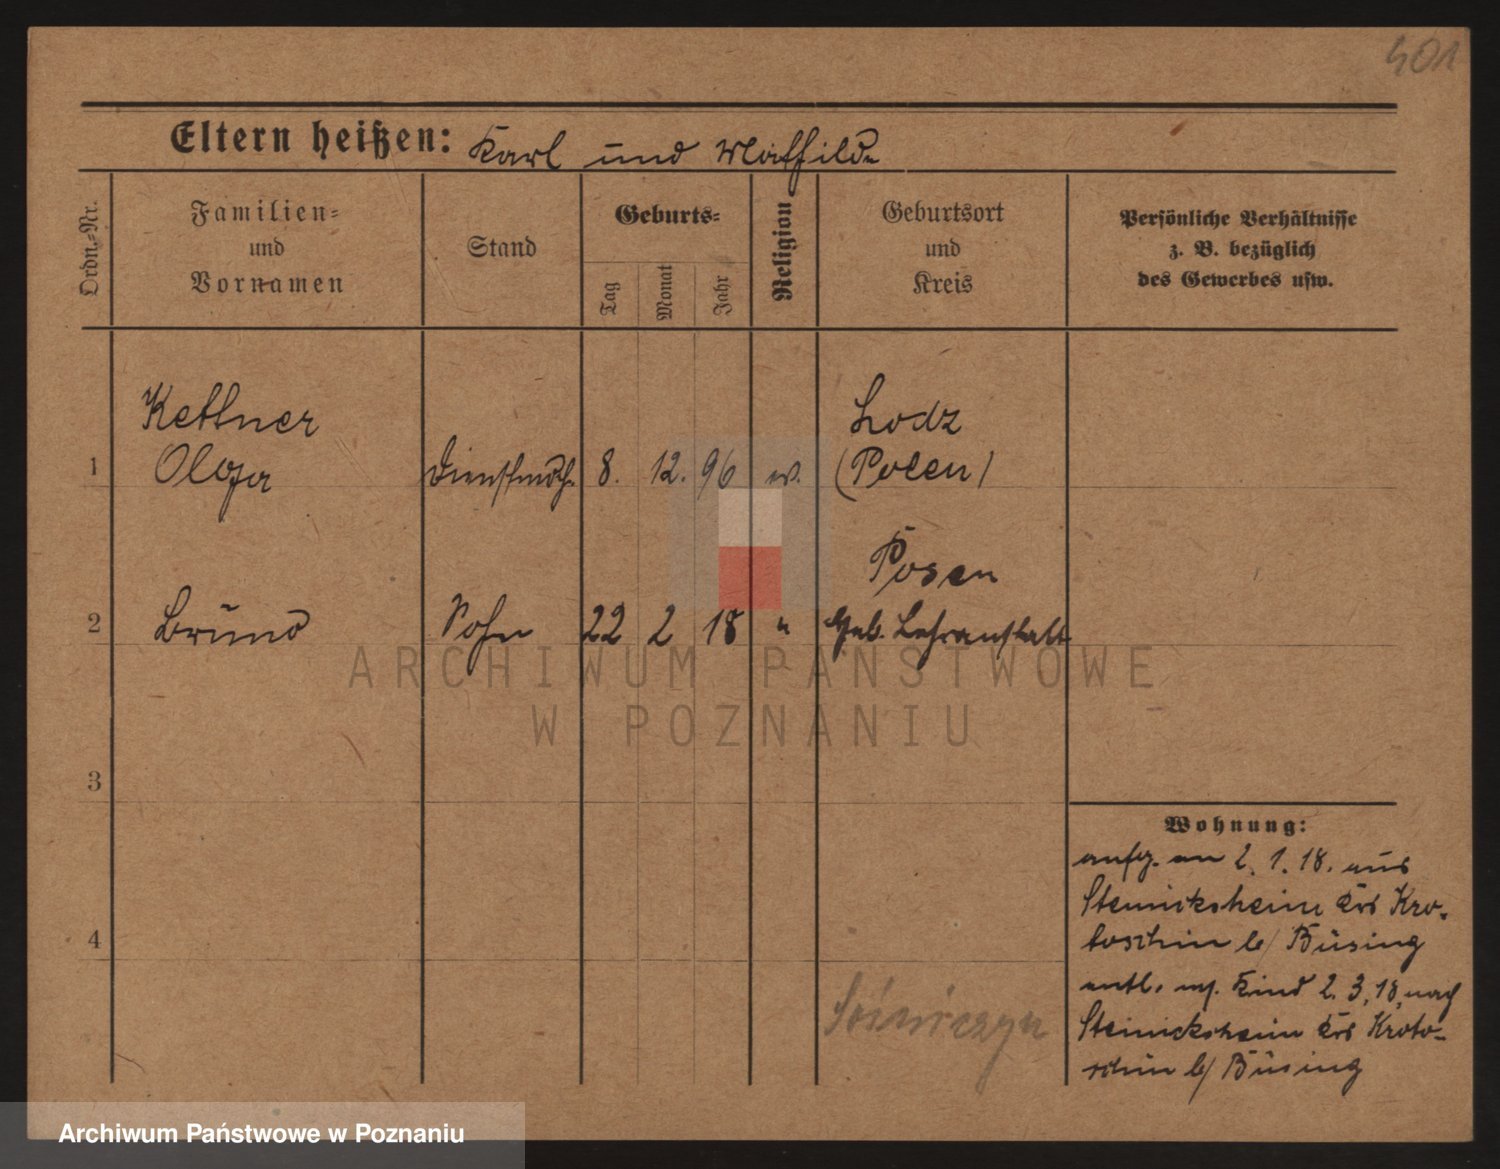 401
Eltern heißen: Karl und Mathilde
Ordn.-Nr.
Familien-
und
Vornamen
Stand
Geburts-
Tag
Monat
Jahr
Religion
Geburtsort
und
Kreis
Persönliche Verhältnisse
z. B. bezüglich
des Gewerbes usw.
Kettner
Lodz
1 Olga Dienstmdch. 8. 12. 96 ev. (Polen)
Posen
2 Bruno Sohn 22 2 18 " Heb. Lehranstalt
ARCHIWUM PAŃSTWOWE
W POZNANIU
3
4
Wohnung:
aufg. am 2. 1. 18. aus
Steinicksheim Krs Kro-
toschin b/ Büsing
entl. m. Kind 2. 3. 18. nach
Steinicksheim Krs Kroto-
schin b/ Büsing
Archiwum Państwowe w Poznaniu